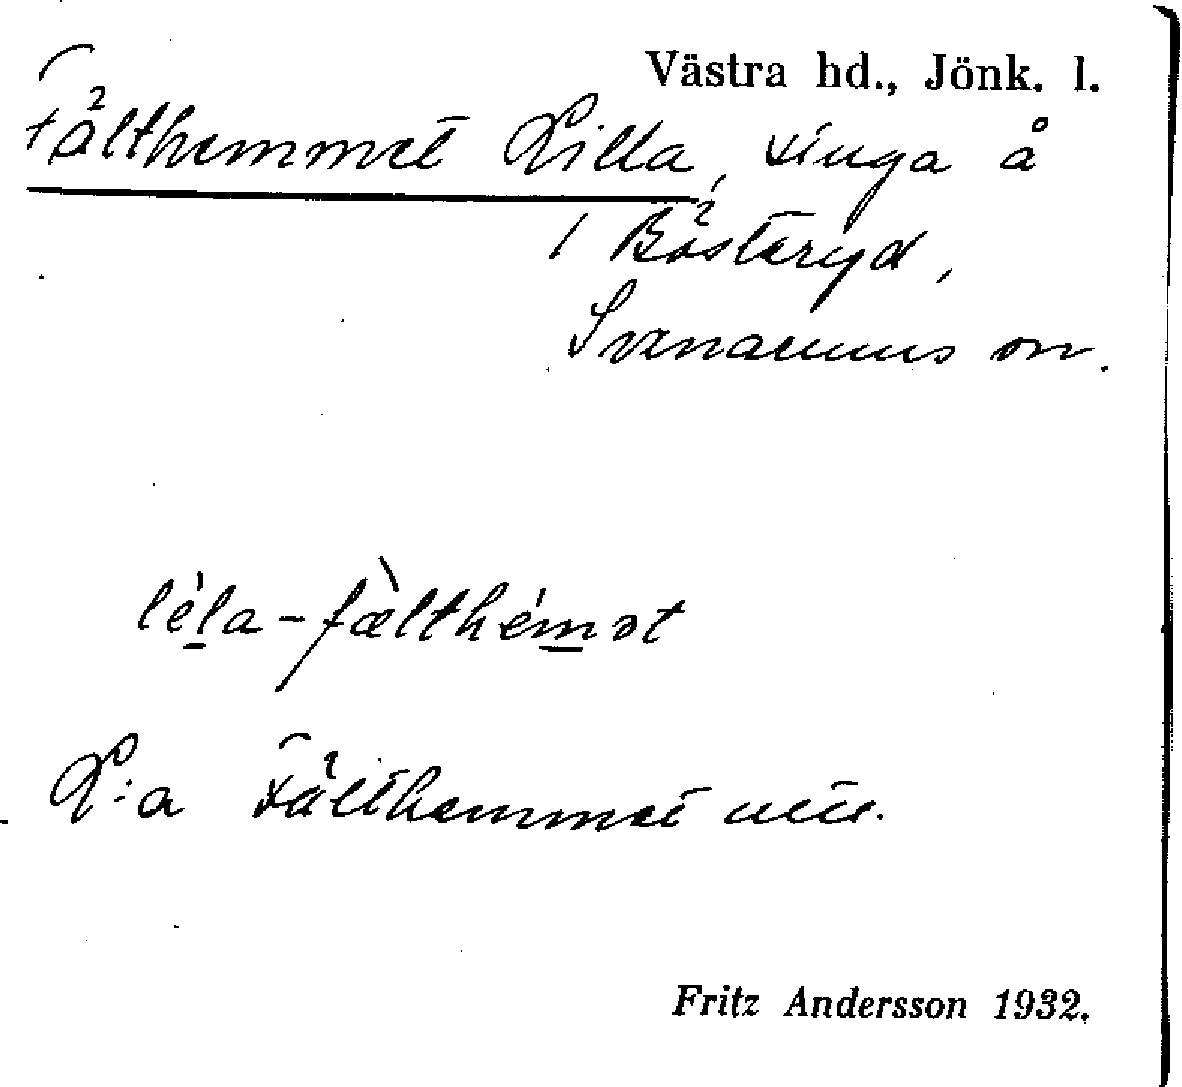 Västra hd., Jönk. l.
Fälthemmet Lilla, äga å
1 Bösteryd,
Svenarums sn.
lèla-fælthémət
L:a Fälthemmet
Fritz Andersson 1932.